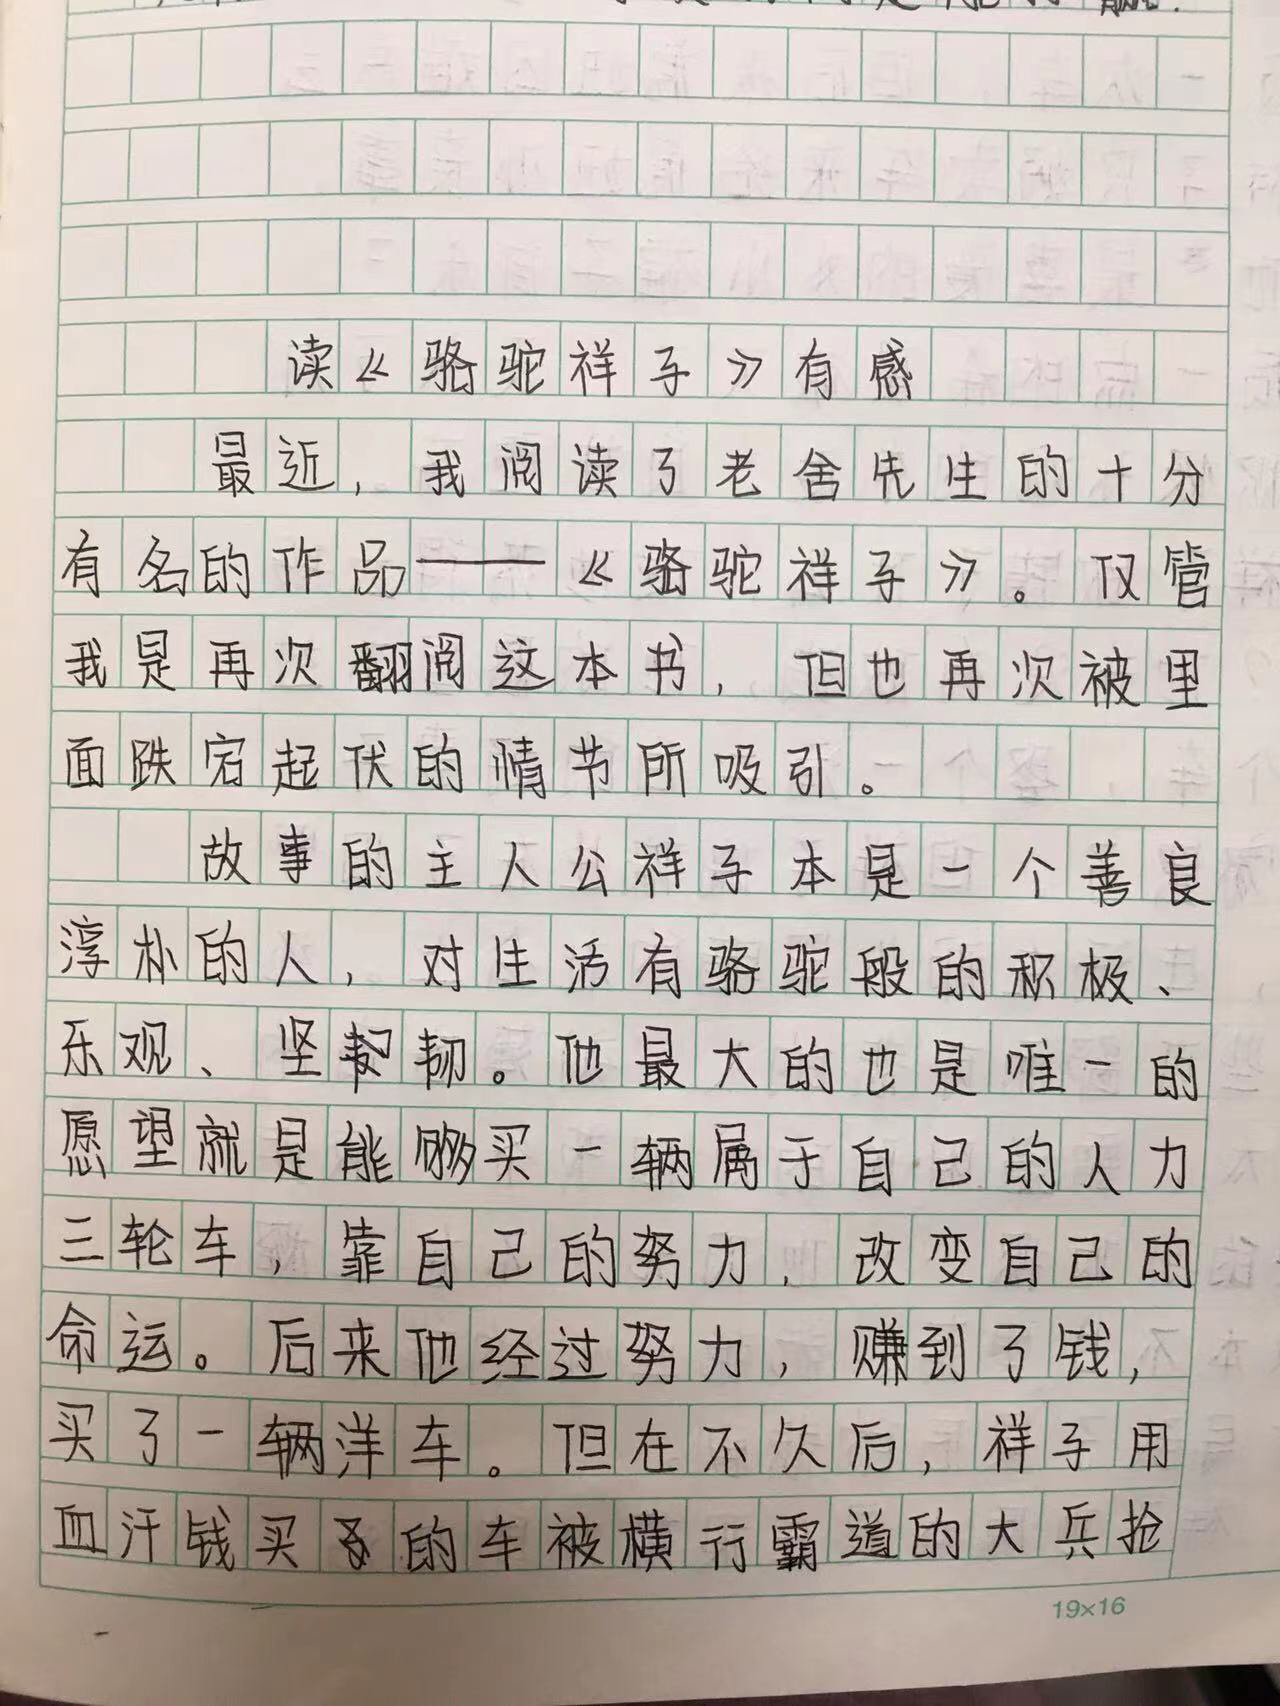 读《骆驼祥子》有感
最近，我阅读了老舍先生的十分
有名的作品——《骆驼祥子》。仅管
我是再次翻阅这本书，但也再次被里
面跌宕起伏的情节所吸引。
故事的主人公祥子本是一个善良
淳朴的人，对生活有骆驼般的积极、
乐观、坚韧。他最大的也是唯一的
愿望就是能够买一辆属于自己的人力
三轮车，靠自己的努力，改变自己的
命运。后来他经过努力，赚到了钱，
买了一辆洋车。但在不久后，祥子用
血汗钱买的车被横行霸道的大兵抢
19×16